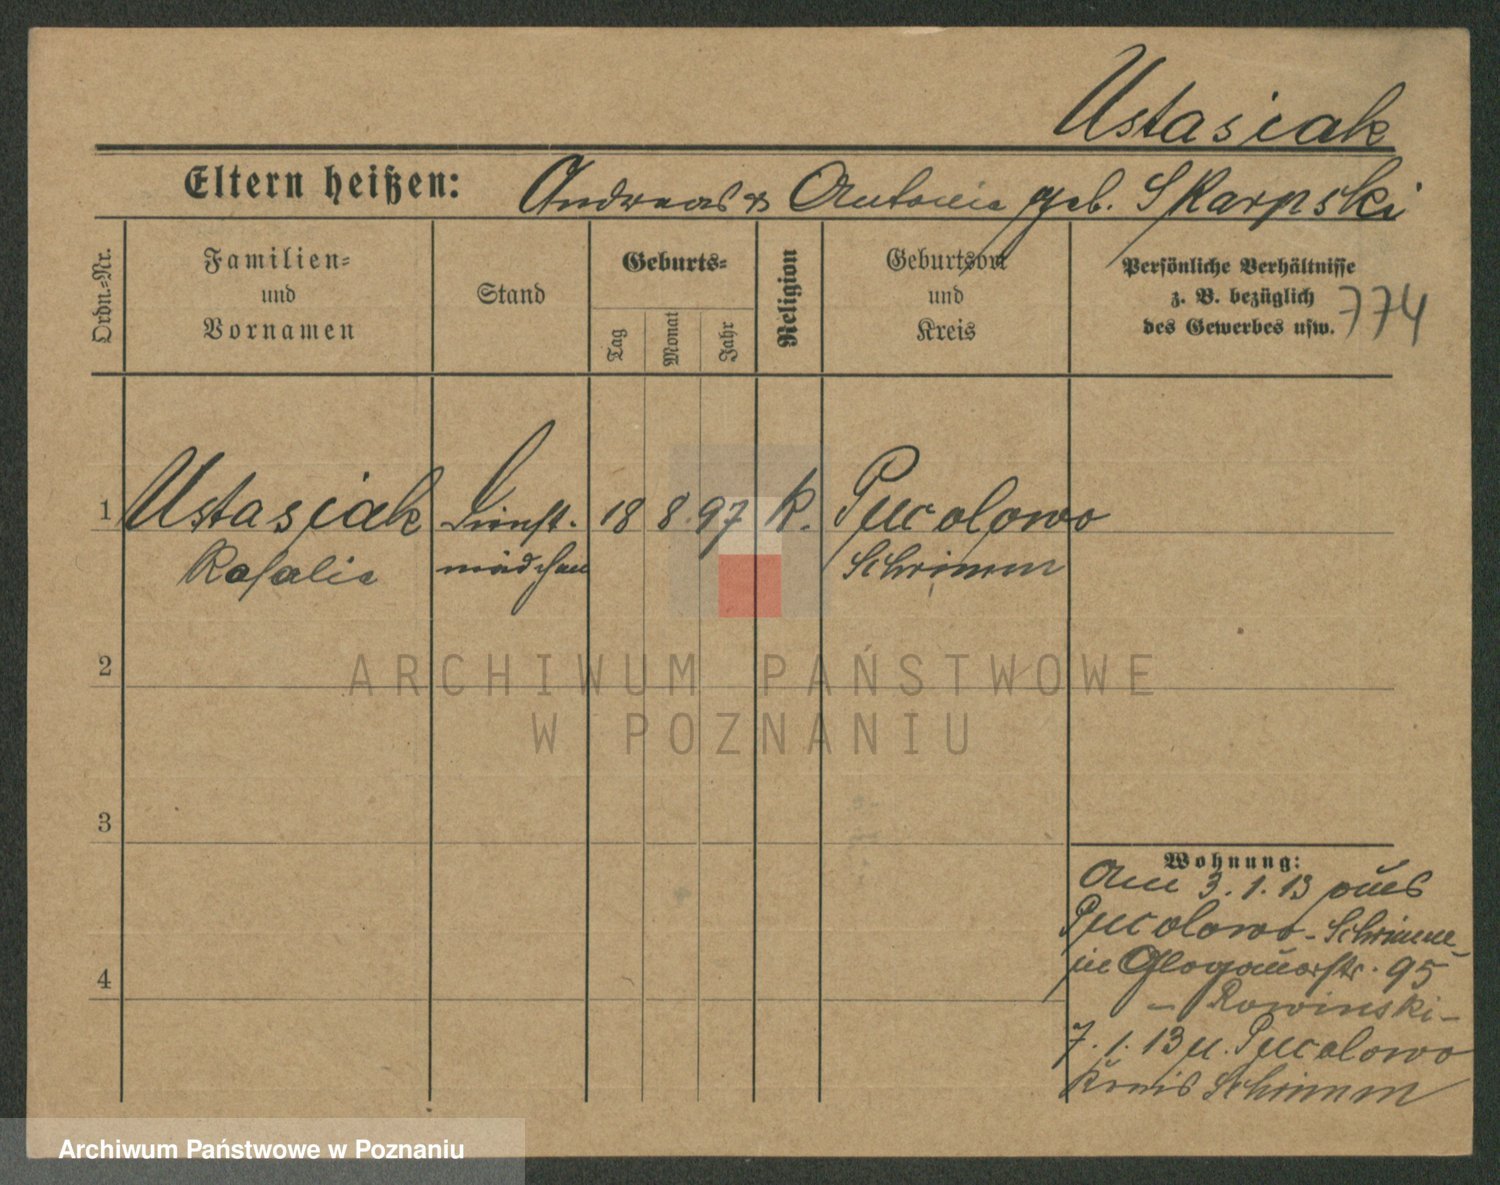 Ustasiak
Eltern heißen: Andreas & Antonie geb. Skarpski
Ordn.-Nr.
Familien-
und
Vornamen
Stand
Geburts-
Tag
Monat
Jahr
Religion
Geburtsort
und
Kreis
Persönliche Verhältnisse
z. B. bezüglich
des Gewerbes usw.
774
1 Ustasiak Dienst- 18 8. 97 k. Pucolowo
Rosalie mädchen Schrimm
2
3
4
Wohnung:
Am 3. 1. 13 aus
Pucolowo - Schrimm -
in Glogauerstr. 95
- Rowinski -
7. 1. 13 n. Pucolowo
Kreis Schrimm
ARCHIWUM PAŃSTWOWE
W POZNANIU
Archiwum Państwowe w Poznaniu